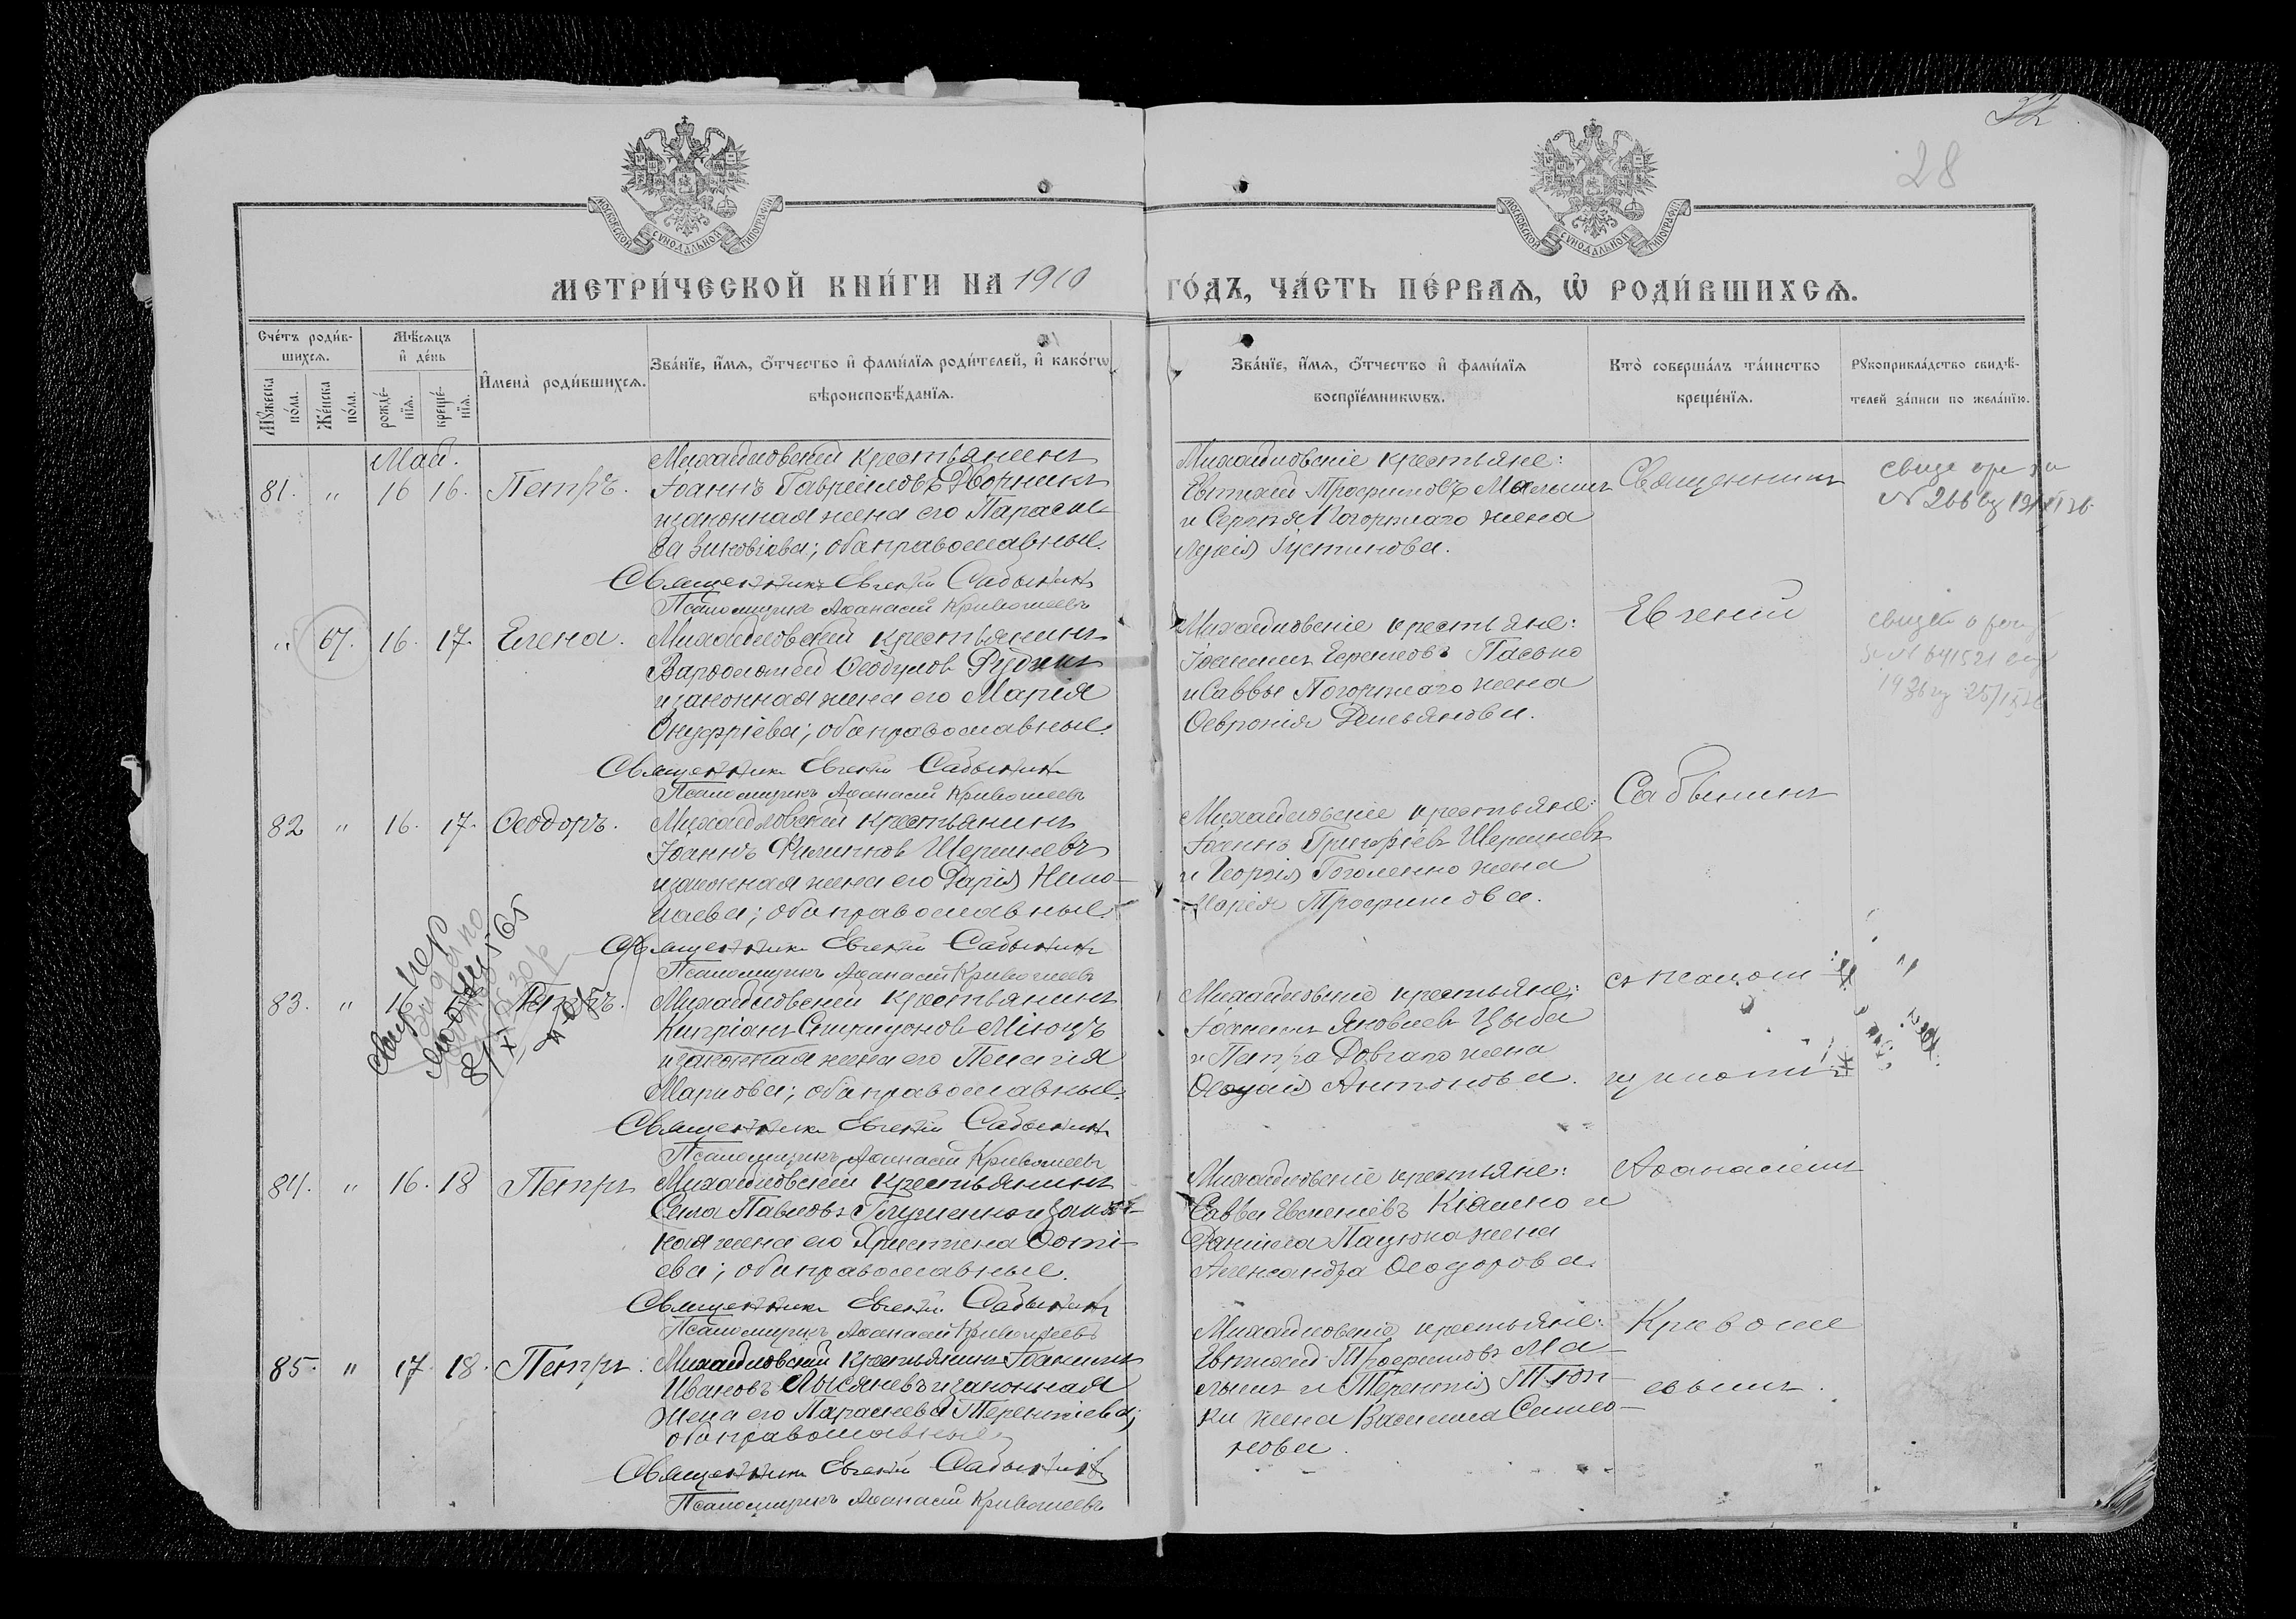 32
28
МОСКОВСКОЙ СѴНОДАЛЬНОЙ ТИПОГРАФІИ
МОСКОВСКОЙ СѴНОДАЛЬНОЙ ТИПОГРАФІИ
МЕТРИ́ЧЕСКОЙ КНИ́ГИ НА 1910 ГО́ДЪ, ЧА́СТЬ ПЕ́РВАѦ, Ѽ РОДИ́ВШИХСѦ.
Сче́тъ роди́в-
шихсѧ.
Мꙋ́жеска по́ла.
Же́нска по́ла.
Мѣ́сѧцъ
и҆ де́нь
рожде́-
нїѧ.
креще́-
нїѧ.
И҆мена̀ роди́вшихсѧ.
Зва́нїе, и҆́мѧ, ѻ҆́тчество и҆ фами́лїѧ роди́телей, и҆ како́гѡ
вѣроисповѣ́данїѧ.
Зва́нїе, и҆́мѧ, ѻ҆́тчество и҆ фами́лїѧ
воспрїе́мникѡвъ.
Кто̀ соверша́лъ та́инство
креще́нїѧ.
Рꙋкоприкла́дство свидѣ́-
телей за́писи по жела́нїю.
Май.
81. " 16 16. Петръ.
Михайловскій крестьянинъ
Іоаннъ Гавриловъ Дворникъ
и законная жена его Параске-
ва Зиновіева; оба православные.
Священникъ Евгеній Сабынинъ
Псаломщикъ Аѳанасій Кривошеевъ
Михайловскіе крестьяне:
Евтихій Трофимовъ Малышъ
и Сергія Погорѣлаго жена
Лукія Іустинова.
" 67. 16. 17. Елена.
Михайловскій крестьянинъ
Варѳоломей Ѳеодуловъ Рудникъ
и законная жена его Марія
Онуфріева; оба православные.
Священникъ Евгеній Сабынинъ
Псаломщикъ Аѳанасій Кривошеевъ
Михайловскіе крестьяне:
и Саввы Погорѣлаго жена
Ѳевронія Демьянова.
82 " 16. 17. Ѳеодоръ.
Михайловскій крестьянинъ
Іоаннъ Филипповъ Шершневъ
и законная жена его Дарія Нико-
лаева; оба православные.
Священникъ Евгеній Сабынинъ
Псаломщикъ Аѳанасій Кривошеевъ
Михайловскіе крестьяне:
Іоаннъ Григоріевъ Шершневъ
и Георгія Гоголенко жена
Марія Трофимова.
83. " 16. Петръ.
Михайловскій крестьянинъ
Кипріанъ Спиридоновъ
и законная жена его Пелагія
Маркова; оба православные.
Священникъ Евгеній Сабынинъ
Псаломщикъ Аѳанасій Кривошеевъ
Михайловскіе крестьяне:
Іоаннъ Яковлевъ Цыба
и Петра Довгаго жена
Антонова.
84. " 16. 18 Петръ
Михайловскій крестьянинъ
Сила Павловъ Глущенко и закон-
ная жена его Христина Фоті-
ева; оба православные.
Священникъ Евгеній Сабынинъ
Псаломщикъ Аѳанасій Кривошеевъ
Михайловскіе крестьяне:
Савва Евменіевъ Кіашко и
Даніила Пацюка жена
Александра Ѳеодорова.
85. " 17. 18. Петръ.
Михайловскій крестьянинъ Іоакимъ
Ивановъ Лысяневъ и законная
жена его Параскева Терентіева;
оба православные
Священникъ Евгеній Сабынинъ
Псаломщикъ Аѳанасій Кривошеевъ
Михайловскіе крестьяне:
Евтихій Трофимовъ Ма-
лышъ и Терентія Тюп-
ки жена Василиса Симео-
нова.
Священникъ
Евгеній
Сабынинъ
съ псалом-
щикомъ
Аѳанасіемъ
Кривоше
евымъ.